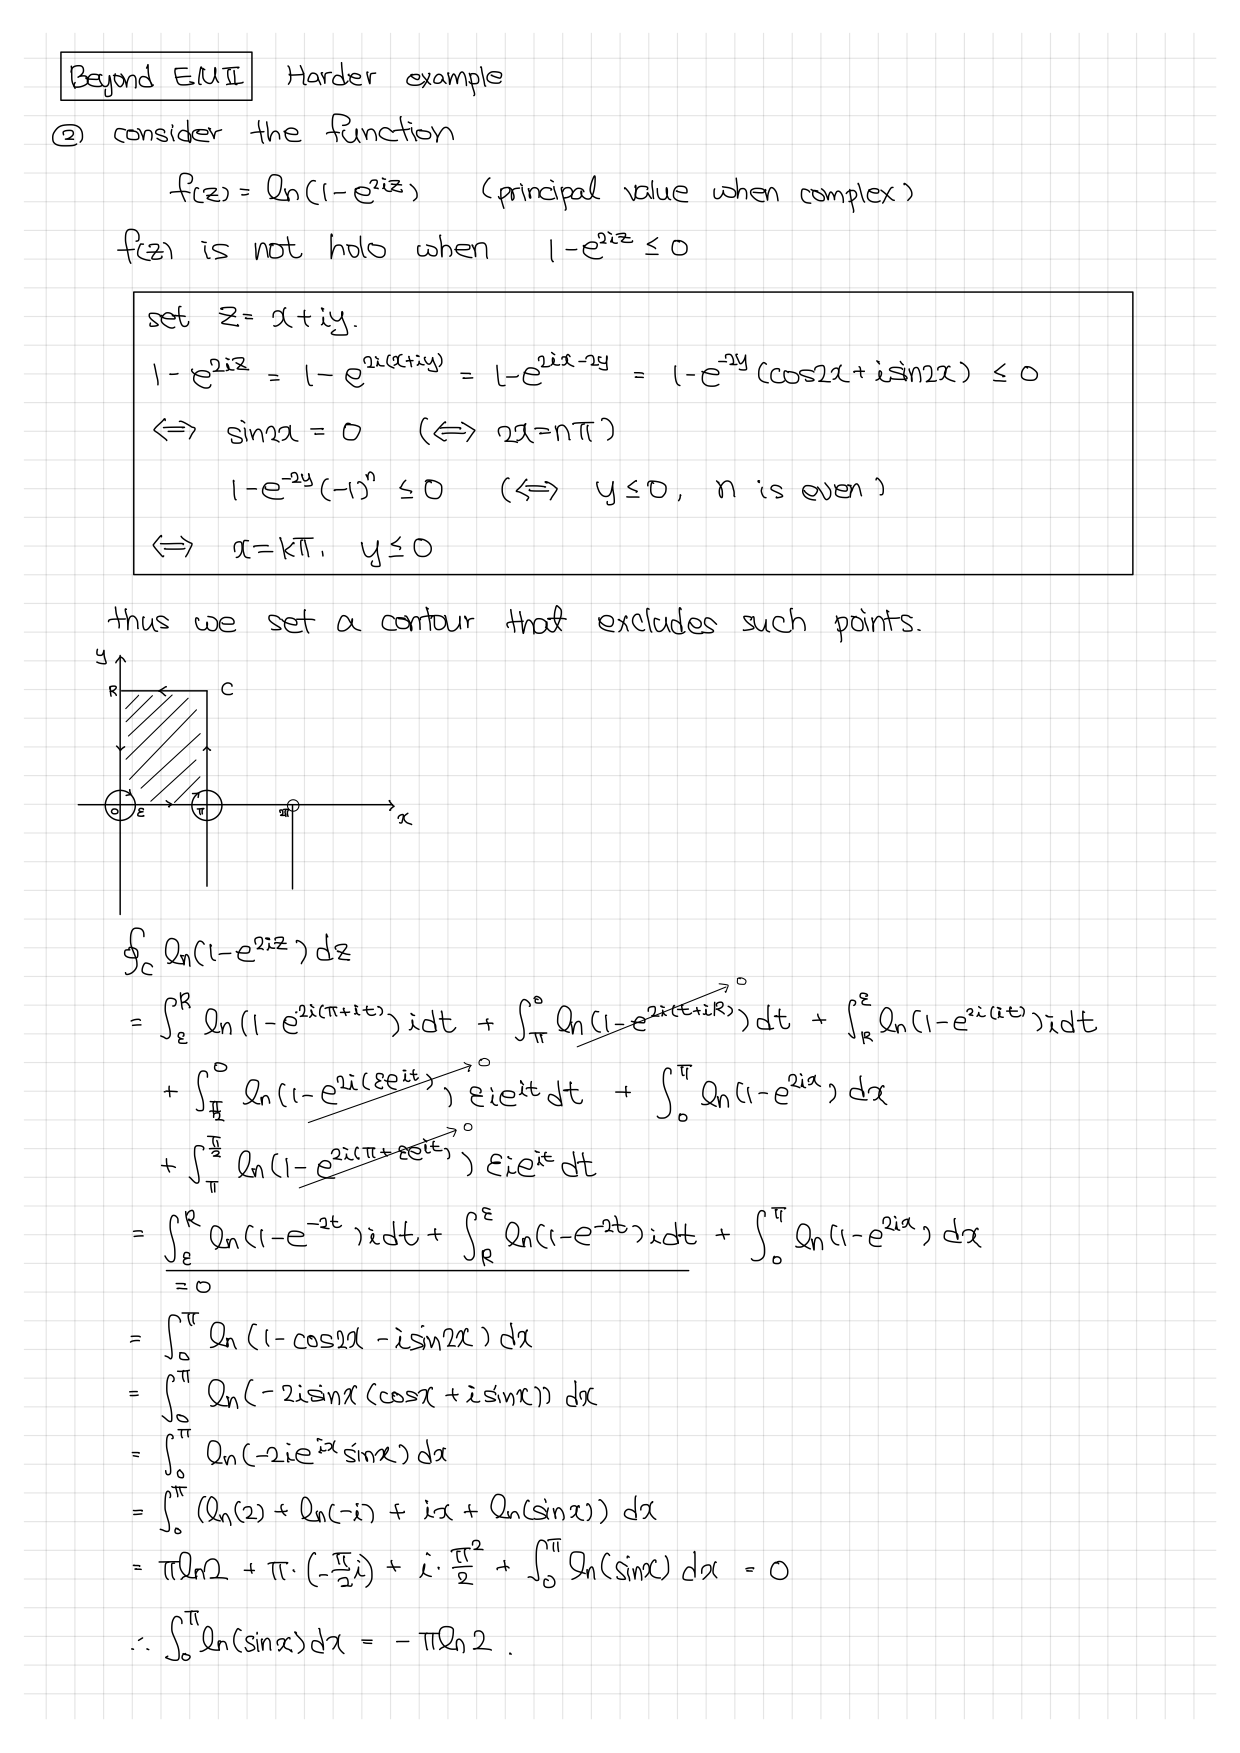 Beyond EMII Harder example
② consider the function
f(z) = ln(1-e^{2iz}) (principal value when complex)
f(z) is not holo when 1-e^{2iz} ≤ 0
set z = x+iy.
1-e^{2iz} = 1-e^{2i(x+iy)} = 1-e^{2ix-2y} = 1-e^{-2y}(cos2x+isin2x) ≤ 0
⟺ sin2x = 0 (⟺ 2x=nπ)
1-e^{-2y}(-1)^n ≤ 0 (⟺ y≤0, n is even)
⟺ x=kπ, y≤0
thus we set a contour that excludes such points.
y
R C
0 ε π 2π x
∮_C ln(1-e^{2iz}) dz
= ∫_ε^R ln(1-e^{2i(π+it)}) idt + ∫_π^0 ln(1-e^{2i(t+iR)}) dt → 0 + ∫_R^ε ln(1-e^{2i(it)}) idt
+ ∫_{π/2}^0 ln(1-e^{2i(εe^{it})}) εie^{it} dt → 0 + ∫_0^π ln(1-e^{2ix}) dx
+ ∫_π^{π/2} ln(1-e^{2i(π+εe^{it})}) εie^{it} dt → 0
= ∫_ε^R ln(1-e^{-2t}) idt + ∫_R^ε ln(1-e^{-2t}) idt + ∫_0^π ln(1-e^{2ix}) dx
= 0
= ∫_0^π ln(1-cos2x-isin2x) dx
= ∫_0^π ln(-2isinx(cosx+isinx)) dx
= ∫_0^π ln(-2ie^{ix}sinx) dx
= ∫_0^π (ln(2) + ln(-i) + ix + ln(sinx)) dx
= πln2 + π·(-π/2 i) + i·π²/2 + ∫_0^π ln(sinx) dx = 0
∴ ∫_0^π ln(sinx) dx = -πln2.